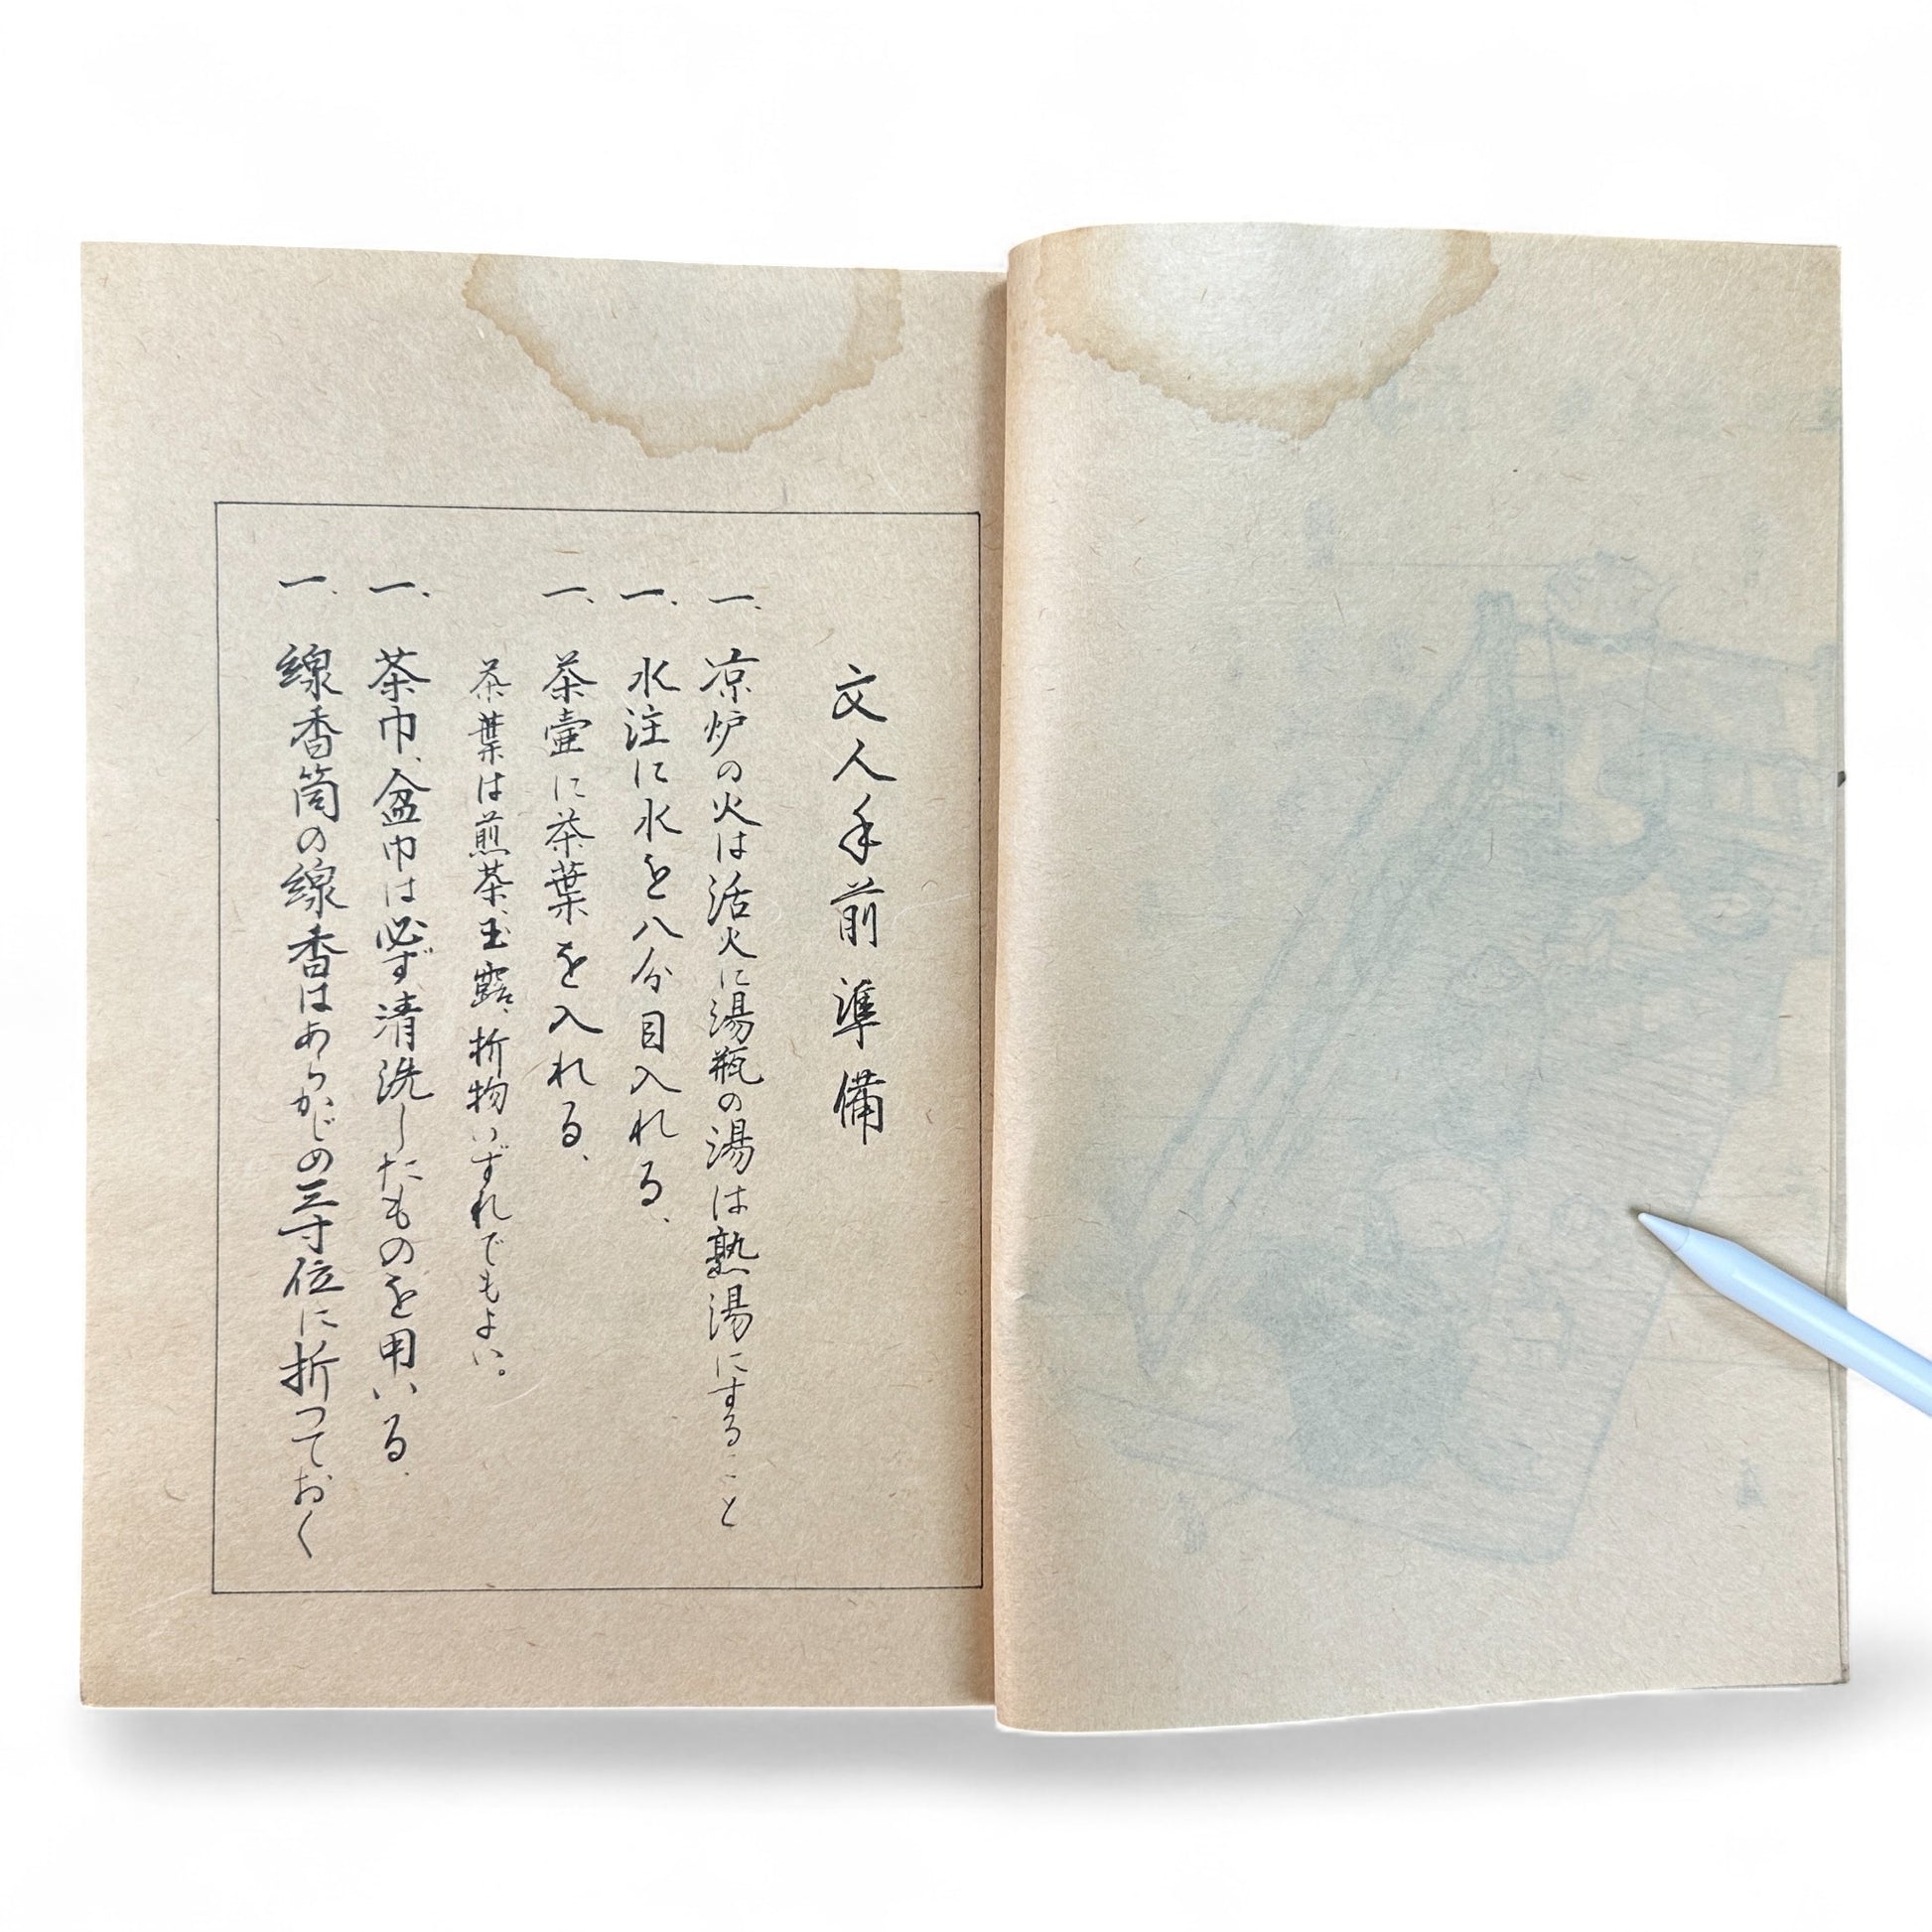 文人手前準備
一、涼炉の火は活火に湯瓶の湯は熟湯にすること
一、水注に水を八分目入れる、
一、茶壷に茶葉を入れる、
茶葉は煎茶、玉露、折物いずれでもよい。
一、茶巾、盆巾は必ず清洗したものを用いる、
一、線香筒の線香はあらかじの三寸位に折っておく